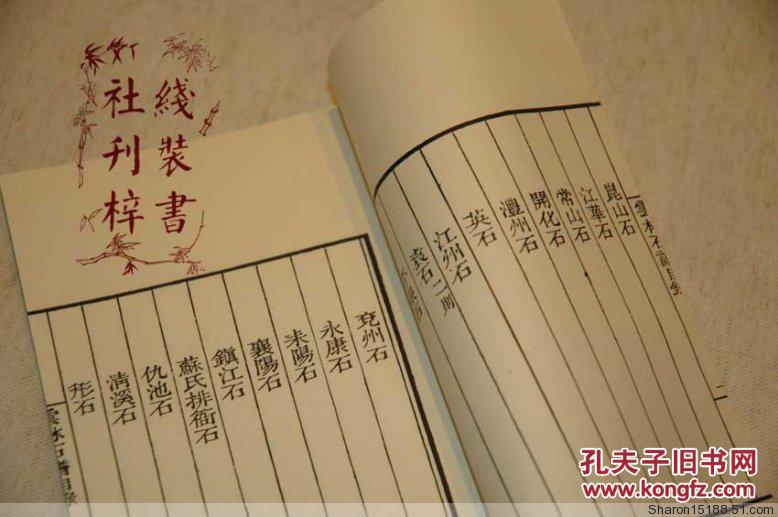 綫装書
社刊梓
雲林石譜目錄
崑山石
江華石
常山石
開化石
澧州石
英石
江州石
袁石二則
兖州石
永康石
耒陽石
襄陽石
鎮江石
蘇氏排衙石
仇池石
清溪石
形石
雲林石譜目錄
孔夫子旧书网
www.kongfz.com
Sharon15188.51.com